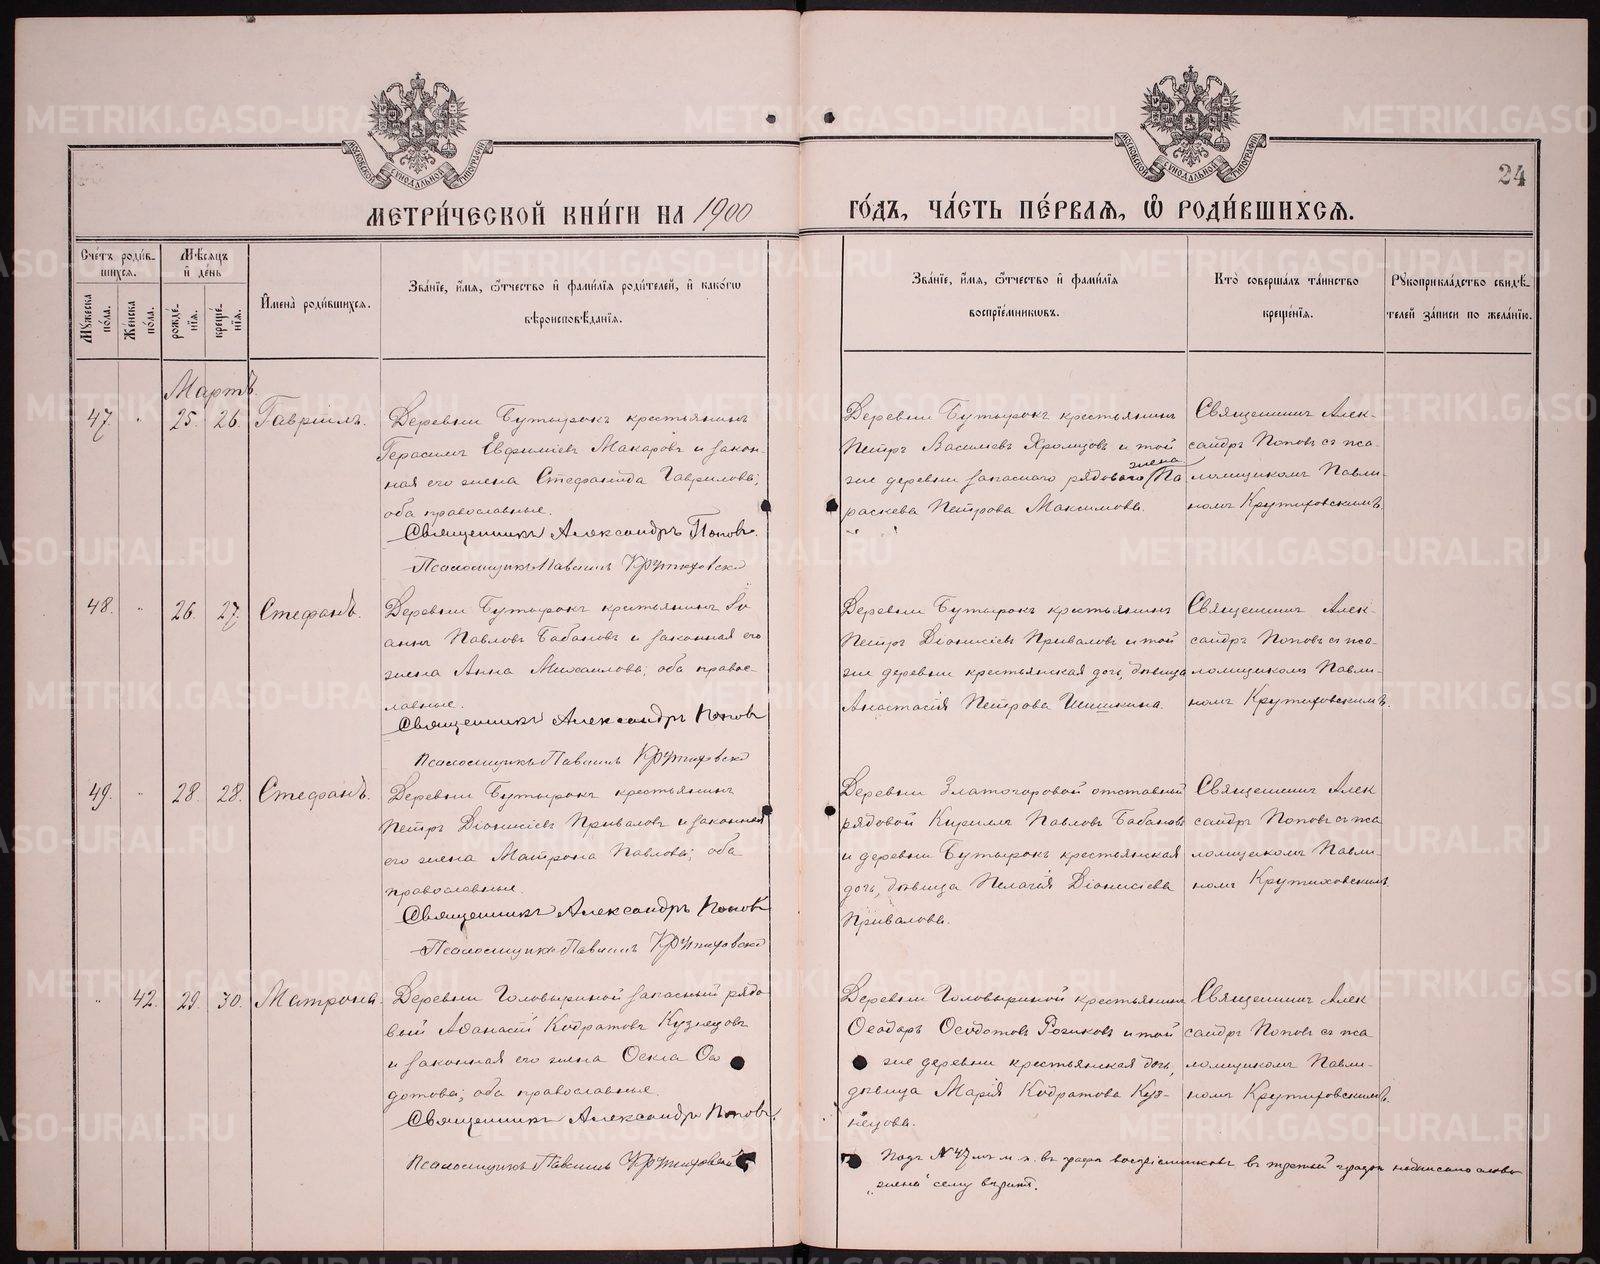 24
МЕТРИ́ЧЕСКОЙ КНИ́ГИ НА 1900
ГО́ДЪ, ЧА́СТЬ ПЕ́РВАЯ, Ѡ РОДИ́ВШИХСЯ.
Сче́тъ роди́в-
шихся.
Мѣ́сяцъ
и де́нь
Му́жеска по́ла.
Же́нска по́ла.
рожде́-
нія.
креще́-
нія.
Имена̀ роди́вшихся.
Зва́ніе, и́мя, о́тчество и фами́лія роди́телей, и како́гѡ
вѣроисповѣ́данія.
Зва́ніе, и́мя, о́тчество и фами́лія
воспріе́мниковъ.
Кто̀ соверша́лъ та́инство
креще́нія.
Рукоприкла́дство свидѣ́-
телей за́писи по жела́нію.
Мартъ.
47. " 25. 26. Гавріилъ.
Деревни Бутырокъ крестьянинъ
Герасимъ Евфиміевъ Макаровъ и закон-
ная его жена Стефанида Гаврилова;
оба православные.
Священникъ Александръ Поповъ.
Псаломщикъ Павлинъ Крутиховскій
Деревни Бутырокъ крестьянинъ
Петръ Василіевъ Храмцовъ и той
жена
же деревни запаснаго рядоваго Па
раскева Петрова Максимова.
Священникъ Алек-
сандръ Поповъ съ пса-
ломщикомъ Павли-
номъ Крутиховскимъ.
48. " 26. 27. Стефанъ.
Деревни Бутырокъ крестьянинъ Іо
аннъ Павловъ Бабановъ и законная его
жена Анна Михаилова; оба правос-
лавные.
Священникъ Александръ Поповъ
Псаломщикъ Павлинъ Крутиховскій
Деревни Бутырокъ крестьянинъ
Петръ Діонисіевъ Приваловъ и той
же деревни крестьянская дочь, дѣвица
Анастасія Петрова Шишкина.
Священникъ Алек-
сандръ Поповъ съ пса-
ломщикомъ Павли-
номъ Крутиховскимъ.
49. " 28. 28. Стефанъ.
Деревни Бутырокъ крестьянинъ
Петръ Діонисіевъ Приваловъ и законная
его жена Матрона Павлова; оба
православные.
Священникъ Александръ Поповъ
Псаломщикъ Павлинъ Крутиховскій
Деревни Златогоровой отставный
рядовой Кириллъ Павловъ Бабановъ
и деревни Бутырокъ крестьянская
дочь, дѣвица Пелагія Діонисіева
Привалова.
Священникъ Алек
сандръ Поповъ съ пса
ломщикомъ Павли-
номъ Крутиховскимъ.
" 42. 29. 30. Матрона.
Деревни Головыриной запасный рядо
вый Аѳанасій Кодратовъ Кузнецовъ
и законная его жена Ѳекла Ѳео
дотова; оба православные.
Священникъ Александръ Поповъ.
Псаломщикъ Павлинъ Крутиховскій
Деревни Головыриной крестьянинъ
Ѳеодоръ Ѳеодотовъ Рожковъ и той
же деревни крестьянская дочь,
дѣвица Марія Кодратова Куз-
нецова.
Священникъ Алек
сандръ Поповъ съ пса
ломщикомъ Павли-
номъ Крутиховскимъ.
Подъ № 47 мъ м. п. въ графѣ воспріемниковъ въ третьей надписано слово
„жена" сему вѣрить.